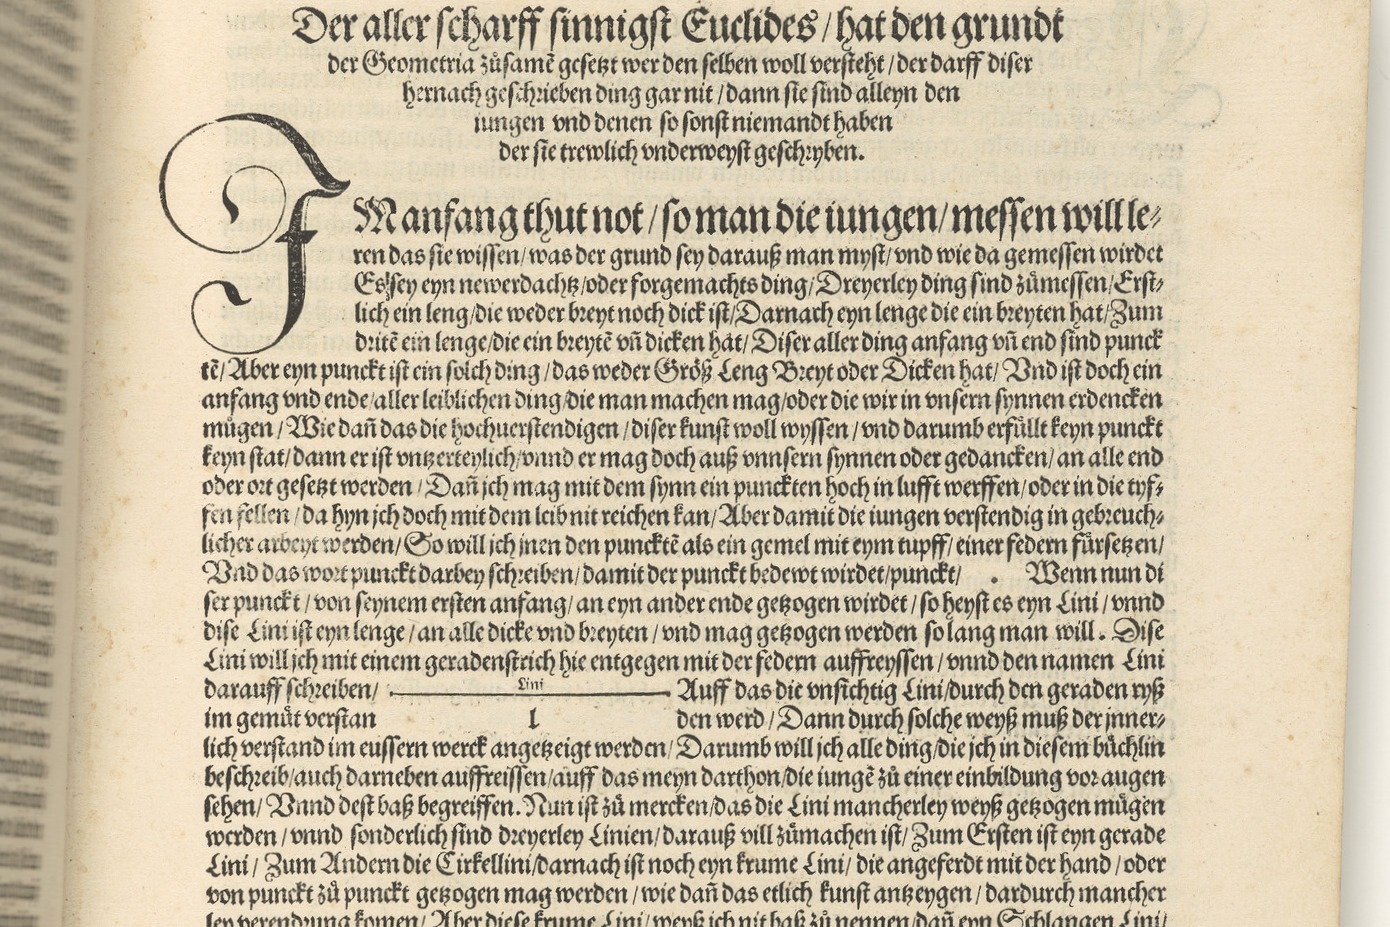 Der aller scharff sinnigst Euclides / hat den grundt
der Geometria zůsamē gesetzt wer den selben woll versteht / der darff diser
hernach geschrieben ding gar nit / dann sie sind alleyn den
iungen vnd denen so sonst niemandt haben
der sie trewlich vnderweyst geschryben.
IM anfang thut not / so man die iungen / messen will le⸗
ren das sie wissen / was der grund sey darauß man myst / vnd wie da gemessen wirdet
Es sey eyn newerdachtz / oder forgemachts ding / Dreyerley ding sind zůmessen / Erst⸗
lich ein leng / die weder breyt noch dick ist / Darnach eyn lenge die ein breyten hat / Zum
dritē ein lenge / die ein breytē vñ dicken hat / Diser aller ding anfang vñ end sind punck
tē / Aber eyn punckt ist ein solch ding / das weder Größ Leng Breyt oder Dicken hat / Vnd ist doch ein
anfang vnd ende / aller leiblichen ding / die man machen mag / oder die wir in vnsern synnen erdencken
mügen / Wie dañ das die hochuerstendigen / diser kunst woll wyssen / vnd darumb erfüllt keyn punckt
keyn stat / dann er ist vntzerteylich / vnnd er mag doch auß vnnsern synnen oder gedancken / an alle end
oder ort gesetzt werden / Dañ jch mag mit dem synn ein punckten hoch in lufft werffen / oder in die tyf⸗
fen fellen / da hyn jch doch mit dem leib nit reichen kan / Aber damit die iungen verstendig in gebreuch⸗
licher arbeyt werden / So will jch jnen den punctē als ein gemel mit eym tupff / einer federn fürsetzen /
Vnd das wort punckt darbey schreiben / damit der punckt bedewt wirdet / punckt / . Wenn nun di
ser punckt / von seynem ersten anfang / an eyn ander ende getzogen wirdet / so heyst es eyn Lini / vnnd
dise Lini ist eyn lenge / an alle dicke vnd breyten / vnd mag getzogen werden so lang man will. Dise
Lini will jch mit einem geraden strich hie entgegen mit der federn auffreyssen / vnnd den namen Lini
darauff schreiben / Lini Auff das die vnsichtig Lini / durch den geraden ryß
im gemüt verstan 1 den werd / Dann durch solche weyß muß der jnner⸗
lich verstand im eussern werck angetzeigt werden / Darumb will jch alle ding / die jch in diesem büchlin
beschreib / auch darneben auffreissen / auff das meyn darthon / die iungē zů einer einbildung vor augen
sehen / Vnnd dest baß begreiffen. Nun ist zů mercken / das die Lini mancherley weyß getzogen mügen
werden / vnnd sonderlich sind dreyerley Linien / darauß vill zůmachen ist / Zum Ersten ist eyn gerade
Lini / Zum Andern die Cirkellini / darnach ist noch eyn krume Lini / die angeferdt mit der hand / oder
von punckt zů punckt getzogen mag werden / wie dañ das etlich kunst antzeygen / dardurch mancher
ley verendrung komen / Aber diese krume Lini / weyß jch nit baß zů nennen / dañ eyn Schlangen Lini /